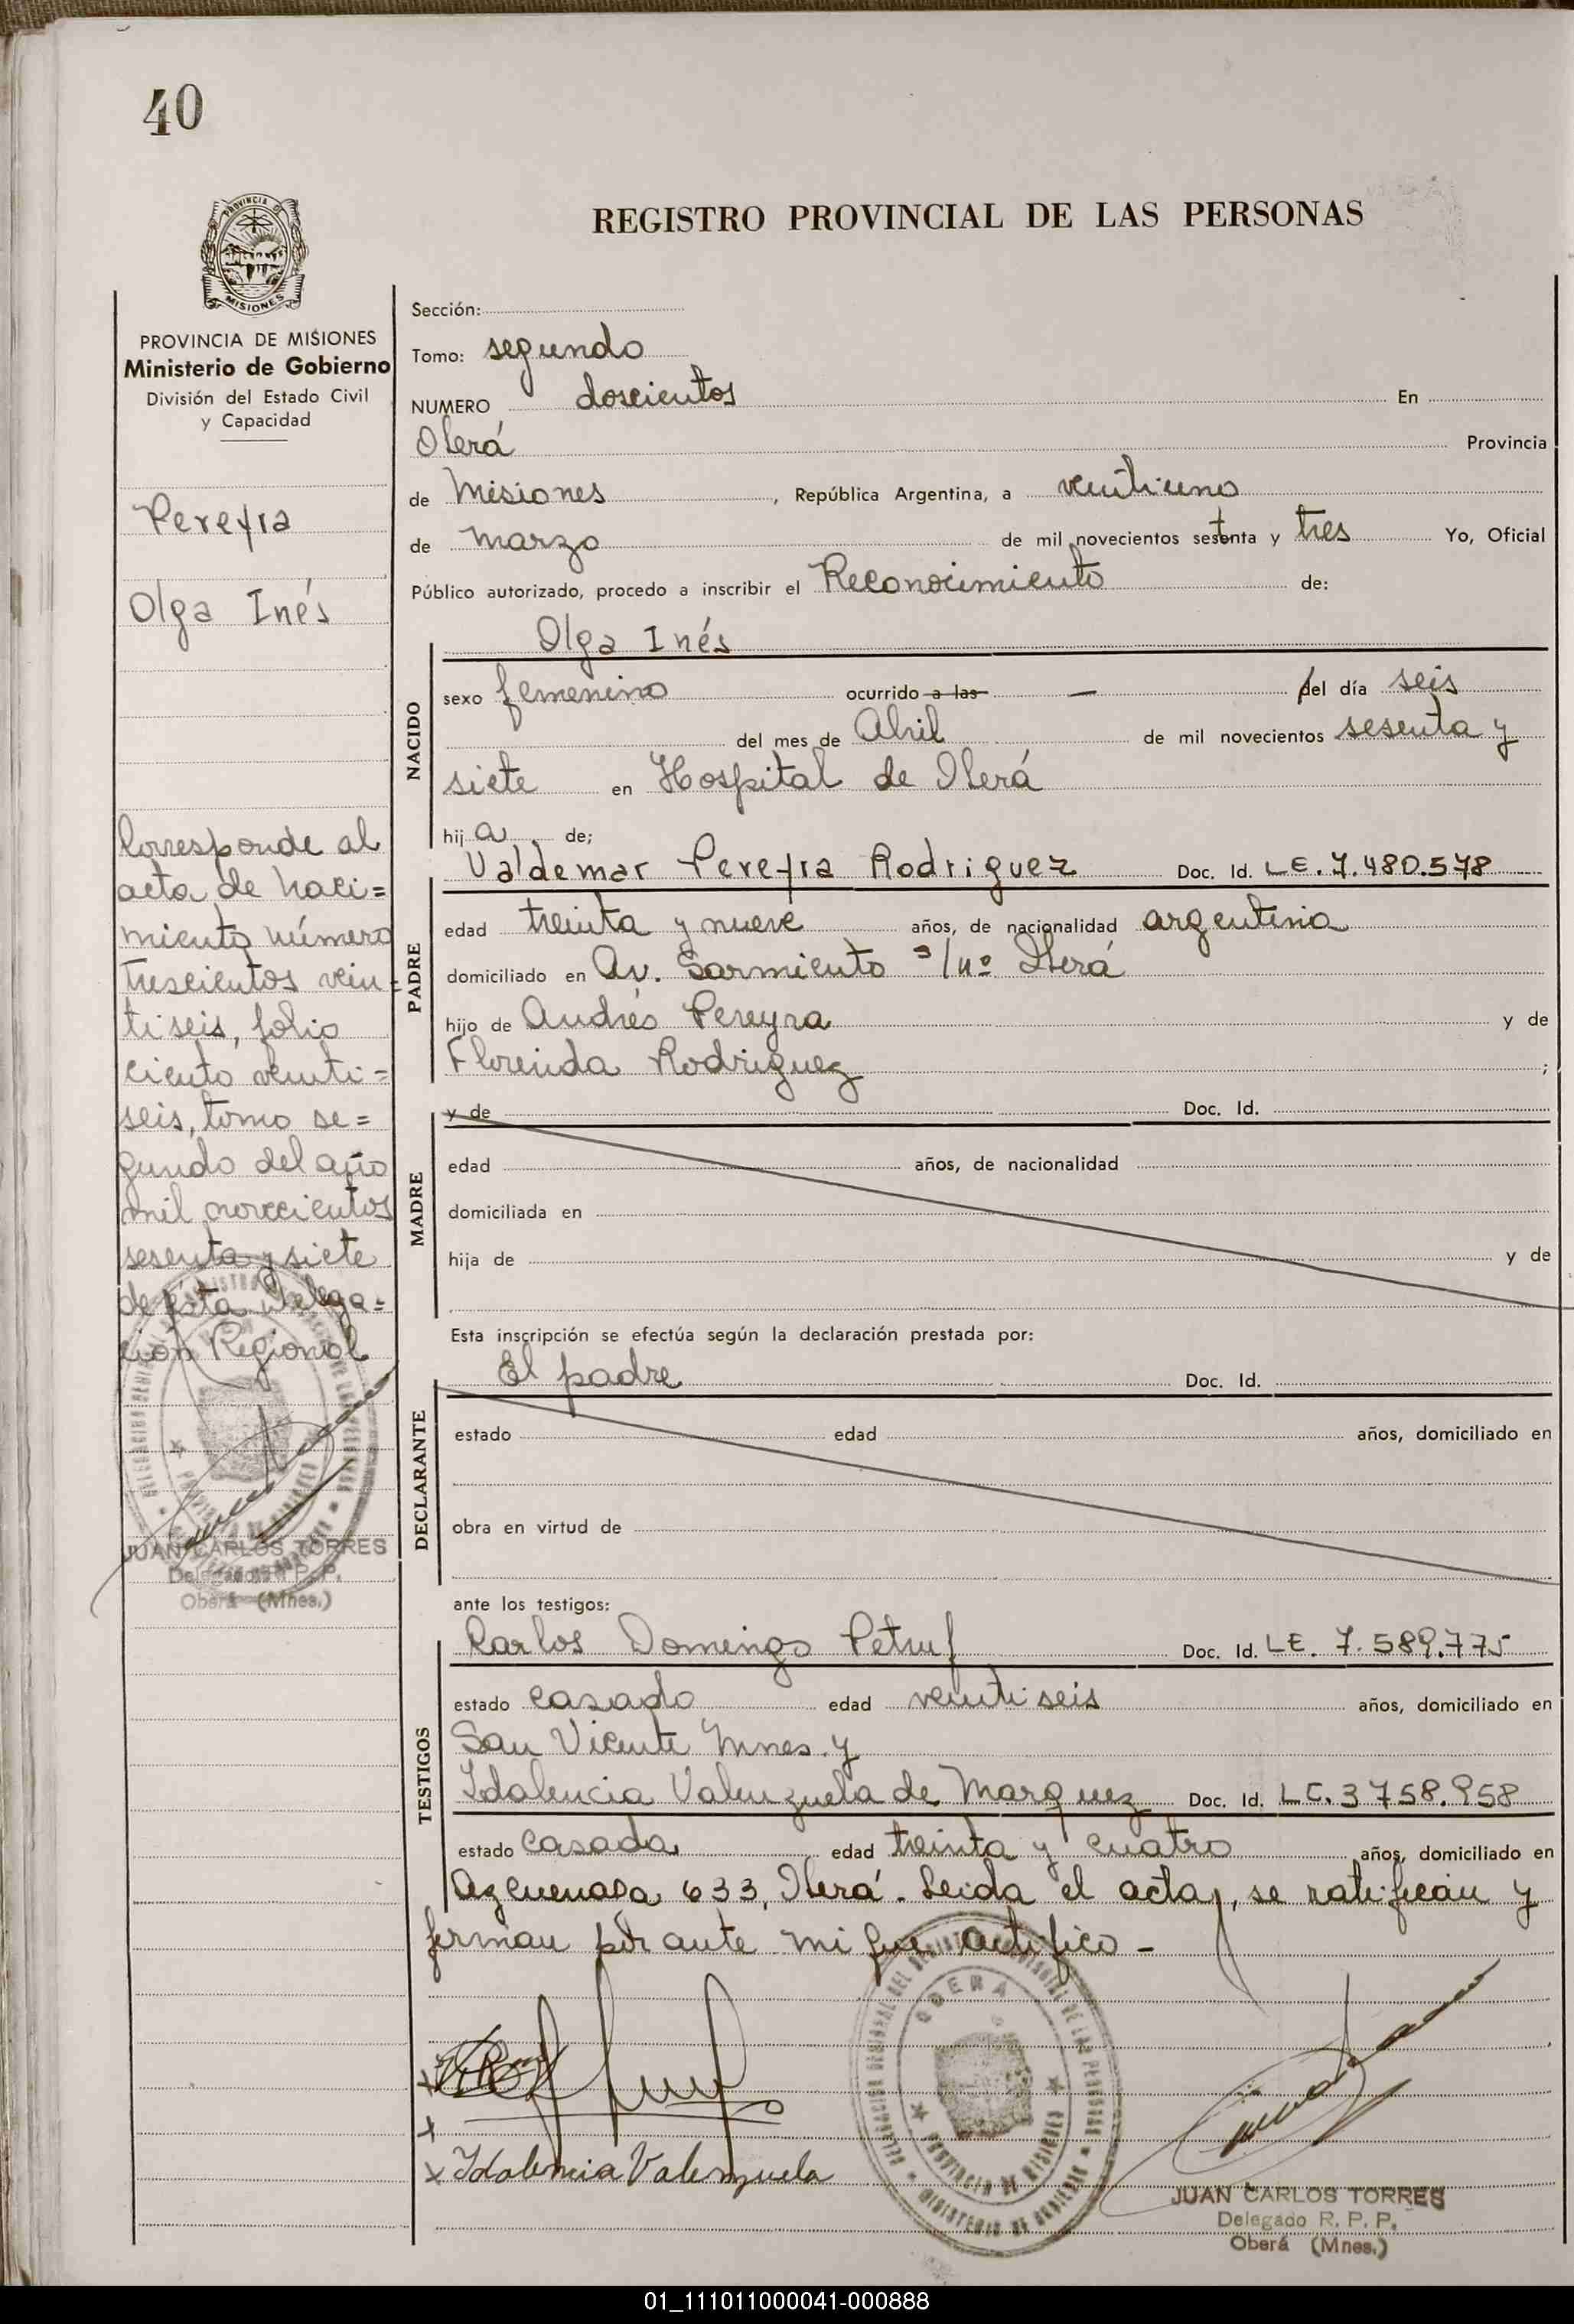 40
REGISTRO PROVINCIAL DE LAS PERSONAS
PROVINCIA DE MISIONES
Ministerio de Gobierno
División del Estado Civil
y Capacidad
Pereyra
Olga Inés
Corresponde al
acta de naci=
miento número
trescientos vein=
tiseis, folio
ciento veinti=
seis, tomo se=
gundo del año
mil novecientos
sesenta y siete
de ésta Delega=
ción Regional
JUAN CARLOS TORRES
Delegado R. P. P.
Oberá (Mnes.)
Sección:
Tomo: segundo
NUMERO doscientos En
Oberá Provincia
de Misiones, República Argentina, a veintiuno
de marzo de mil novecientos setenta y tres Yo, Oficial
Público autorizado, procedo a inscribir el Reconocimiento de:
NACIDO
Olga Inés
sexo femenino ocurrido a las — del día seis
del mes de Abril de mil novecientos sesenta y
siete en Hospital de Oberá
hij a de;
PADRE
Valdemar Pereyra Rodriguez Doc. Id. LE. 7.480.578
edad treinta y nueve años, de nacionalidad argentina
domiciliado en Av. Sarmiento s/nº Oberá
hijo de Andrés Pereyra y de
Florinda Rodriguez ;
MADRE
y de Doc. Id.
edad años, de nacionalidad
domiciliada en
hija de y de
Esta inscripción se efectúa según la declaración prestada por:
DECLARANTE
El padre Doc. Id.
estado edad años, domiciliado en
obra en virtud de
ante los testigos:
TESTIGOS
Carlos Domingo Doc. Id. LE. 7.589.775
estado casado edad veintiseis años, domiciliado en
San Vicente Mnes. y
Idalencia Valenzuela de Marquez Doc. Id. LC. 3758.958
estado casada edad treinta y cuatro años, domiciliado en
Azcuenaga 633, Oberá. Leida el acta, se ratifican y
firman por ante mi que certifico -
Idalencia Valenzuela
OBERA
PROVINCIA DE MISIONES
JUAN CARLOS TORRES
Delegado R. P. P.
Oberá (Mnes.)
01_111011000041-000888